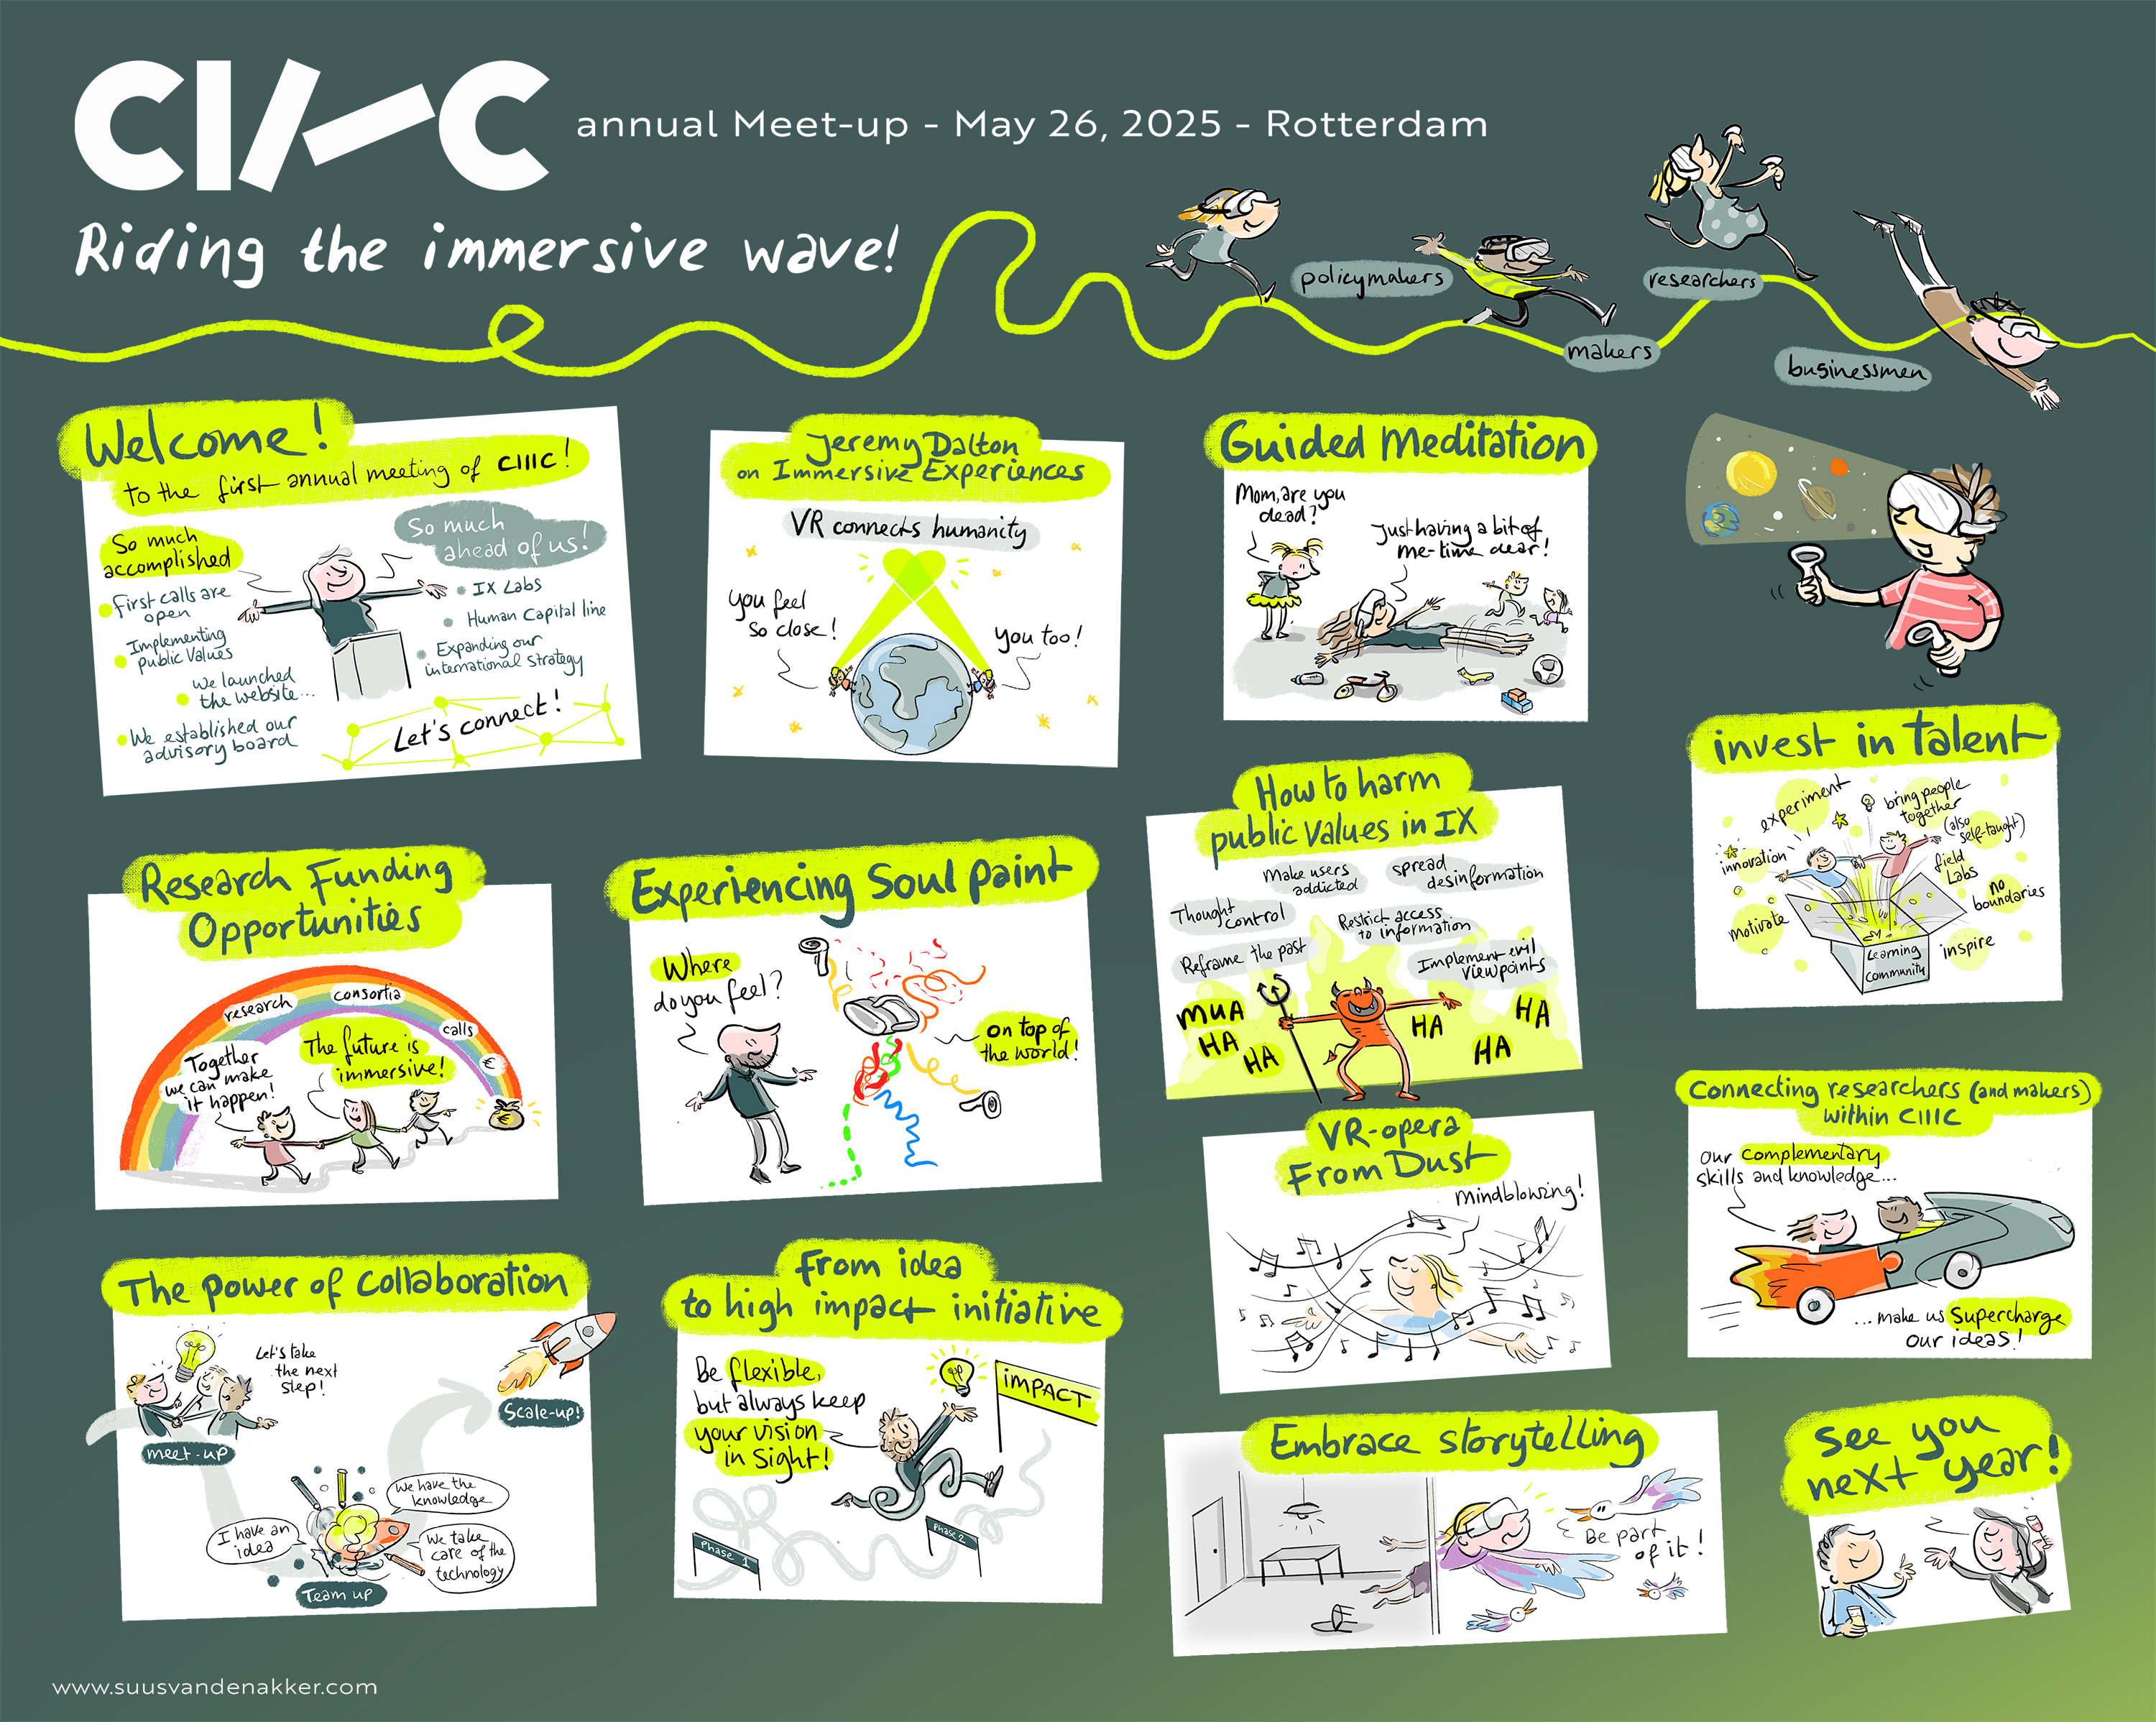 CIIIC
annual Meet-up - May 26, 2025 - Rotterdam
Riding the immersive wave!
policymakers
makers
researchers
businessmen
Welcome!
to the first annual meeting of CIIIC!
So much
accomplished
First calls are
open
Implementing
public values
We launched
the website...
We established our
advisory board
So much
ahead of us!
IX Labs
Human Capital line
Expanding our
international strategy
Let's connect!
Jeremy Dalton
on Immersive Experiences
VR connects humanity
you feel
so close!
you too!
Guided Meditation
Mom, are you
dead?
Just having a bit of
me-time dear!
invest in talent
experiment
bring people
together
(also
self-taught)
innovation
field
Labs
no
boundaries
motivate
inspire
Learning
Community
Research Funding
Opportunities
research
consortia
calls
€
Together
we can make
it happen!
The future is
immersive!
Experiencing Soul Paint
Where
do you feel?
on top of
the world!
How to harm
public values in IX
Make users
addicted
spread
desinformation
Thought
control
Restrict access
to information
Reframe the past
Implement evil
viewpoints
MUA
HA
HA
HA
HA
HA
VR-opera
From Dust
mindblowing!
Connecting researchers (and makers)
within CIIIC
Our complementary
skills and knowledge...
...make us Supercharge
our ideas!
The power of collaboration
Let's take
the next
step!
meet-up
Scale-up!
We have the
knowledge
I have an
idea
We take
care of the
technology
Team up
From idea
to high impact initiative
Be flexible,
but always keep
your vision
in sight!
IMPACT
Phase 1
Phase 2
Embrace storytelling
Be part
of it!
See you
next year!
www.suusvandenakker.com